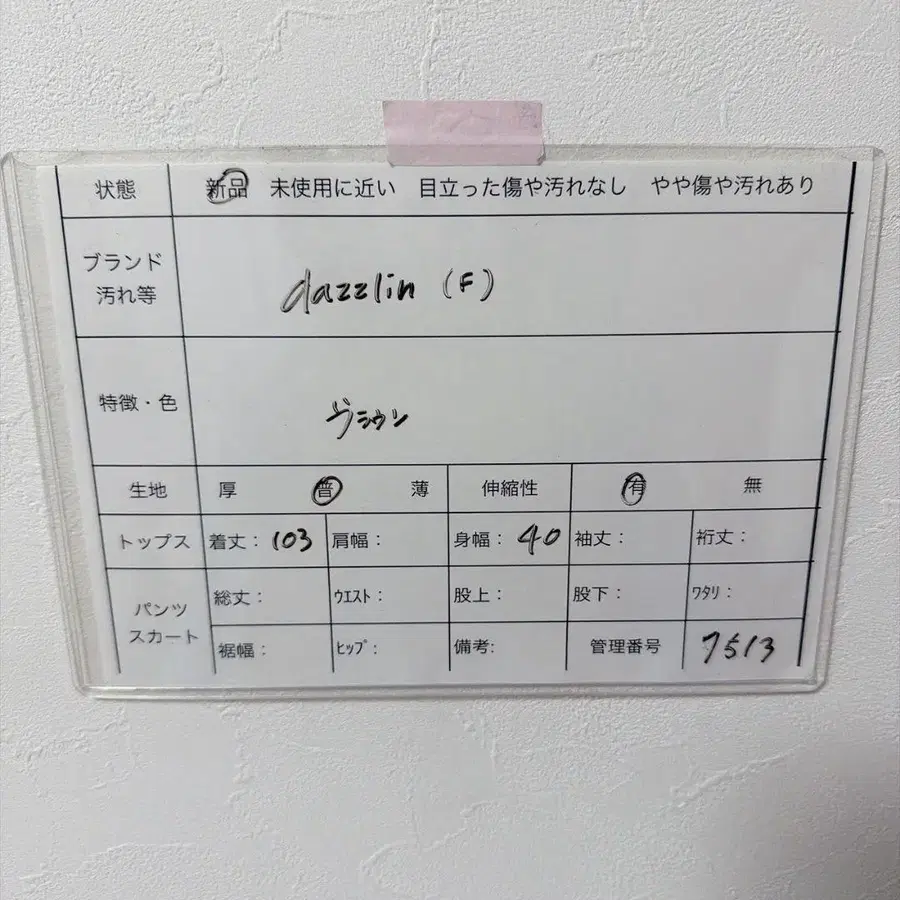 状態 新品 未使用に近い 目立った傷や汚れなし やや傷や汚れあり
ブランド
汚れ等
dazzlin (F)
特徴・色
ブラウン
生地 厚 普 薄 伸縮性 有 無
トップス 着丈：103 肩幅： 身幅：40 袖丈： 裄丈：
パンツ
スカート
総丈： ｳｴｽﾄ： 股上： 股下： ﾜﾀﾘ：
裾幅： ﾋｯﾌﾟ： 備考: 管理番号 7513